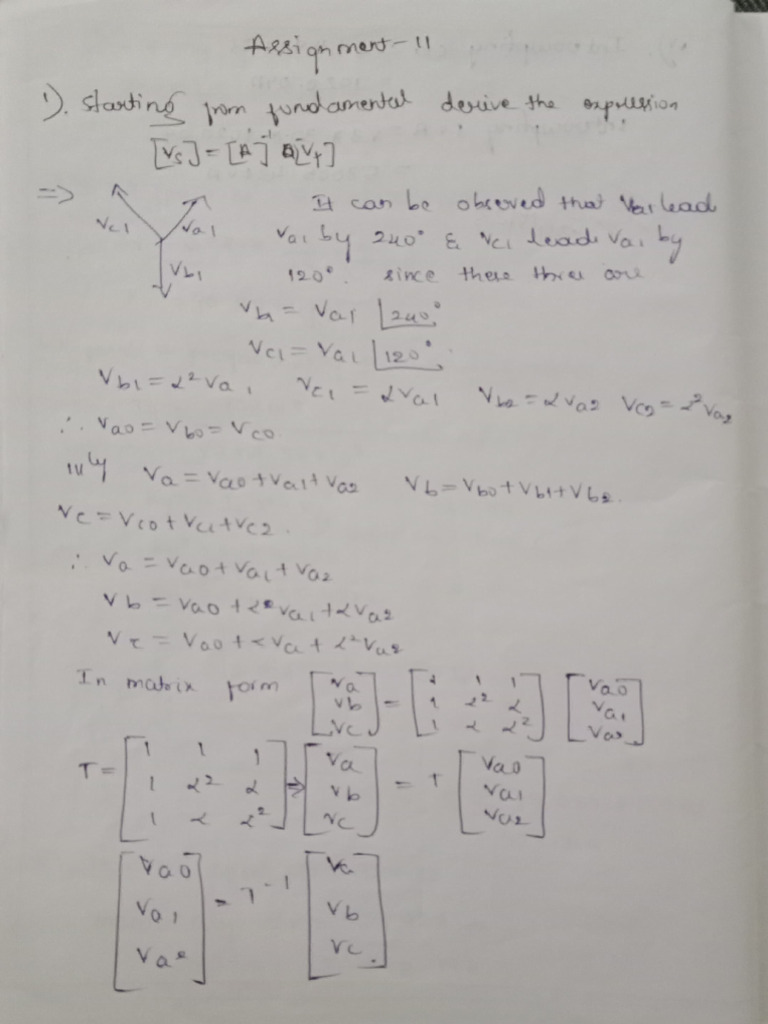 Assignment-11
1). Starting from fundamental derive the expression
[Vs] = [A]⁻¹ [Vf]
=> It can be observed that Vb1 lead
Vc1 Va1 Va1 by 240° & Vc1 lead Va1 by
Vb1 120°. since there three are
Vb1 = Va1 ∠240°
Vc1 = Va1 ∠120°.
Vb1 = α²Va1 Vc1 = αVa1 Vb2 = αVa2 Vc2 = α²Va2
∴ Va0 = Vb0 = Vc0.
111ly Va = Va0 + Va1 + Va2 Vb = Vb0 + Vb1 + Vb2.
Vc = Vc0 + Vc1 + Vc2.
∴ Va = Va0 + Va1 + Va2
Vb = Va0 + α²Va1 + αVa2
Vc = Va0 + αVa1 + α²Va2
In matrix form [Va Vb Vc] = [1 1 1 1 α² α 1 α α²] [Va0 Va1 Va2]
T = [1 1 1 1 α² α 1 α α²] => [Va Vb Vc] = T [Va0 Va1 Va2]
[Va0 Va1 Va2] = T⁻¹ [Va Vb Vc.]